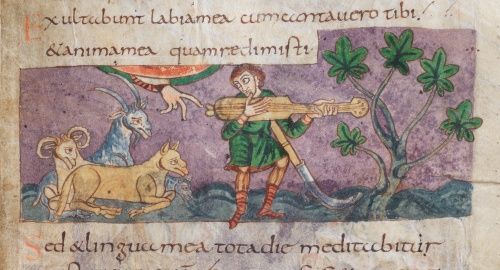 Exultabunt labiamea cumcantauero tibi.
&animamea quamredimisti
Sed &linguamea totadie meditabitur